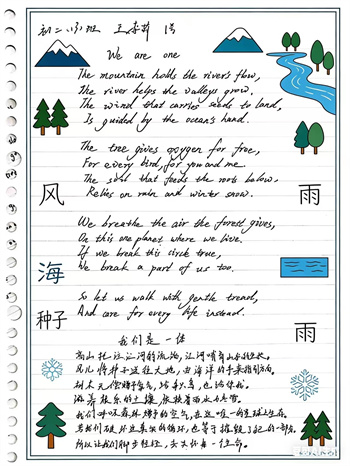 初二.(3)班 王李莉
We are one
The mountain holds the river's flow,
The river helps the valleys grow.
The wind that carries seeds to land,
Is guided by the ocean's hand.
The tree gives oxygen for free,
For every bird, for you and me.
The soil that feeds the roots below,
Relies on rain and winter snow.
风
雨
We breathe the air the forest gives,
On this one planet where we live.
If we break this circle true,
We break a part of us too.
海
So let us walk with gentle tread,
And care for every life instead.
种子
雨
我们是一体
高山托住江河的流淌,江河哺育山谷的生长。
风儿将种子送往大地,由海洋的手来指引方向。
树木无偿赠予氧气,给每只鸟,也给你我。
滋养根系的土壤,依扶着雨水和雪。
我们呼吸森林赠予的空气,在这唯一的星球上生存。
若我们破坏这真实的循环,也等于摧毁了自己的一部分。
所以让我们脚步轻轻,关怀每一个生命。